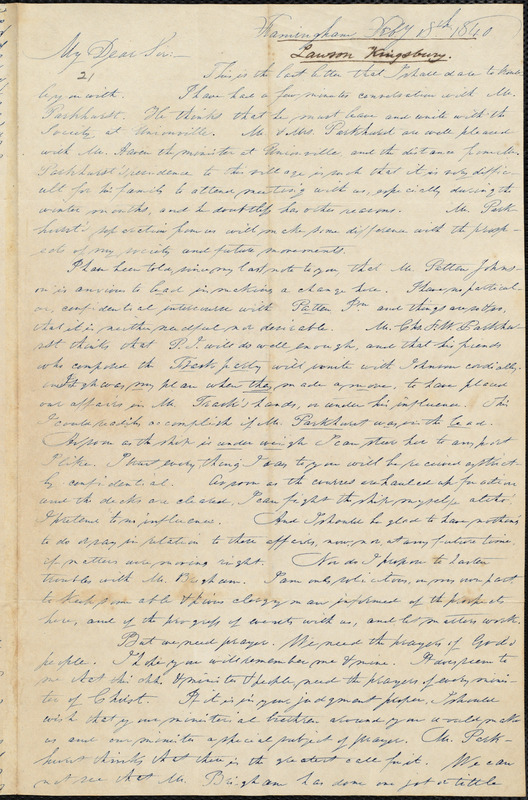 Framingham, Feby 18th 1840
Lawson Kingsbury.
My Dear Sir:—
21 This is the last letter that I shall dare to trouble
you with. I have had a few minutes conversation with Mr.
Parkhurst. He thinks that he must leave and unite with the
Society at Unionville. Mr & Mrs. Parkhurst are well pleased
with Mr. Haven the minister at Unionville, and the distance from Mr.
Parkhurst's residence to this village is such that it is very diffic-
ult for his family to attend meeting with us, especially during the
winter months, and he doubtless has other reasons. Mr. Park-
hurst's defection from us will make some difference with the prosp-
ects of my society and future movements.
I have been told, since my last note to you, that Mr. Patten Johns-
on is anxious to lead in making a change here. I have no particul-
ar, confidential intercourse with Patten Jn and things are so too,
that it is neither needful nor desirable. Mr. Chs F. W. Parkhu-
rst thinks that P. J. will do well enough, and that his friends
who composed the Trask party will unite with Johnson cordially.
It has was, my plan when they made a move, to have placed
our affairs in Mr. Trask's hands, or under his influence. This
I could readily accomplish if Mr. Parkhurst was in the Lead.
As soon as the ship is under weigh I can steer her to any port
I like. I trust every thing I say to you will be received as strict-
ly confidential. As soon as the courses are hauled up for action
and the decks are cleared, I can fight the ship myself altho'
I pretend to no influence. And I should be glad to have nothing
to do or say in relation to these affairs, now, nor at any future time,
if matters are moving right. Nor do I propose to hasten
troubles with Mr. Brigham. I am only solicitous, on my own part
to keep some able & pious clergyman informed of the prospects
here, and of the progress of events with us, and let matters work.
But we need prayer. We need the prayers of God's
people. I hope you will remember me & mine. It does seem to
me that this chh. & minister & people need the prayers of every minis-
ter of Christ. If it is in your judgment proper, I should
wish that your ministerial brethren around you would make
us and our minister a special subject of prayer. Mr. Park-
hurst thinks that there is the greatest call for it. We can
not see that Mr. Brigham has done one jot or tittle